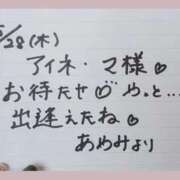 5/28(木)
アイネ・マ様♡
お待たせ♡やっと…
出逢えたね♡
あめみより